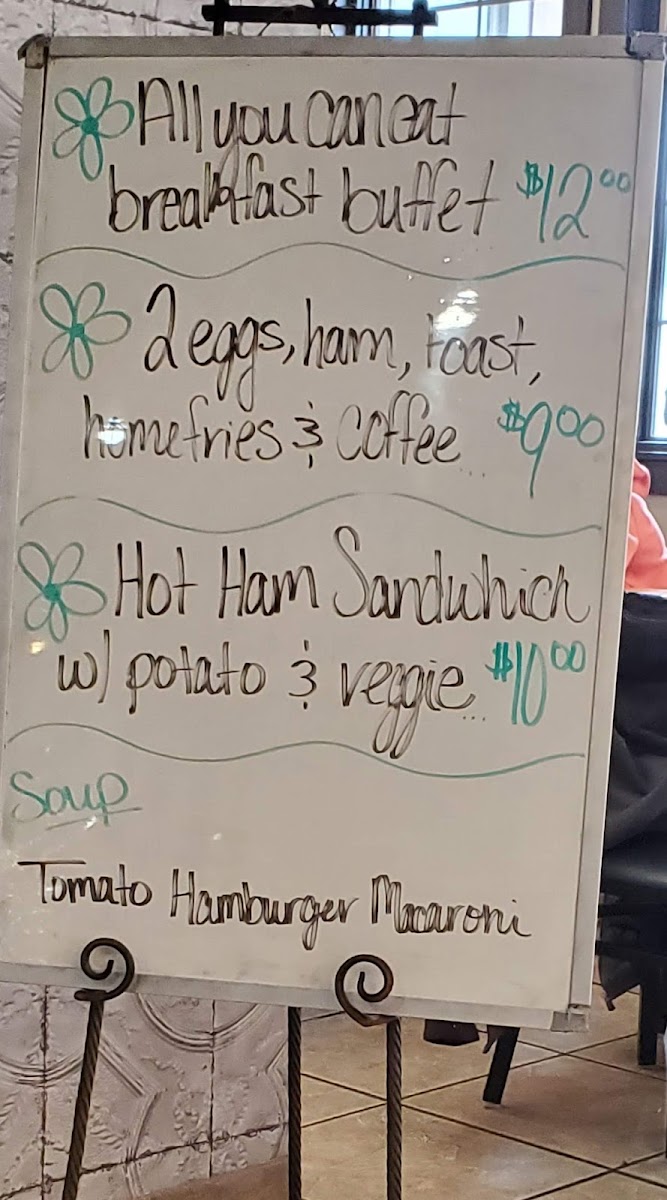 All you can eat
breakfast buffet $12.00
2 eggs, ham, toast,
homefries & coffee... $9.00
Hot Ham Sandwhich
w/ potato & veggie... $10.00
Soup
Tomato Hamburger Macaroni